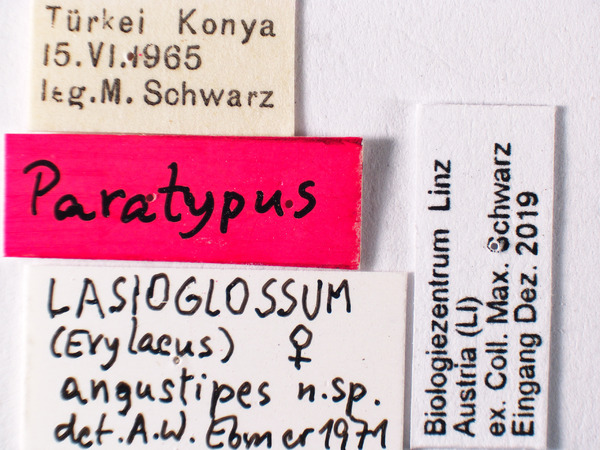 Türkei Konya
15.VI.1965
leg.M. Schwarz
Paratypus
LASIOGLOSSUM
(Evylaeus) ♀
angustipes n.sp.
det.A.W. Ebmer 1971
Biologiezentrum Linz
Austria (LI)
ex. Coll. Max. Schwarz
Eingang Dez. 2019